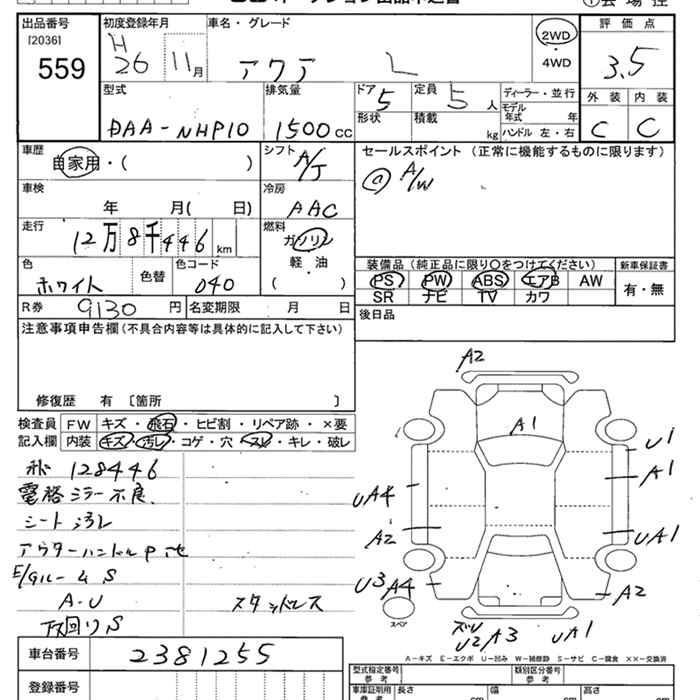 出品番号 初度登録年月 車名・グレード 評価点
[2036]
559 H26 11月 アクア L 2WD・4WD 3.5
型式 排気量 ドア 5 定員 5人 ディーラー・並行 外装 内装
DAA-NHP10 1500cc 形状 積載 kg モデル年式 年 ハンドル 左・右 C C
車歴 自家用・( ) シフト A/T セールスポイント (正常に機能するものに限ります)
車検 年 月( 日) 冷房 AAC ⓐ A/W
走行 12万8千446km 燃料 ガソリン 軽・油 ( )
色 ホワイト 色替 色コード 040 装備品(純正品に限り○をつけてください) 新車保証書
PS PW ABS エアB AW 有・無
SR ナビ TV カワ
R券 9130円 名変期限 月 日 後日品
注意事項申告欄(不具合内容等は具体的に記入して下さい)
修復歴 有〔箇所 〕
検査員 FW キズ・飛石・ヒビ割・リペア跡・×要
記入欄 内装 キズ・汚レ・コゲ・穴・スレ・キレ・破レ
128446
電格ミラー不良
シート汚レ
E/gルームS
A・U スタッドレス
下回りS
A2
A1
U1
A1
UA4
A2
UA1
U3 A4
A2
スペア
U2 A3 UA1
A-キズ E-エクボ U-凹み W-補修跡 S-サビ C-腐食 ××-交換済
車台番号 2381255
登録番号
型式指定番号 参考 類別区分番号 参考
車庫証明用 参考 長さ cm 幅 cm 高さ cm